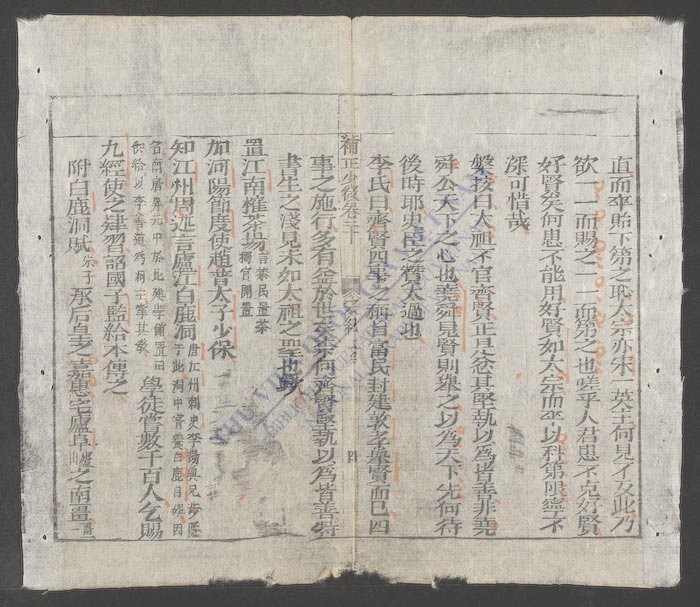 直而卒貽下第之恥太宗亦宋一英主何見不及此乃
欲一一而賜之一一而第之也嗟乎人君患不克好賢
好賢矣何患不能用好賢如太宗而卒以科第限寧不
深可惜哉
槃按曰太祖不官齊賢正旦忿其堅執以為皆善非堯
舜公天下之心也羙舜見賢則舉之以為天下先何待
後時耶史臣之贊太過也
李氏曰齊賢四事之稱旨富民封建敦孝舉賢而已四
事之施行多有益於世奈何齊賢堅執以為皆善特
書生之淺見未如太祖之聖也歟
置江南榷茶場
官禁民賣茶
獨官開置
加河陽節度使趙普太子少保
知江州周述言廬江白鹿洞
唐江州刺史李渤與兄涉隱
于此洞中嘗養白鹿自娛因
名南唐昇元中於此建學館置田
供給以李善道為洞主掌其教
學徒嘗數千百人乞賜
九經使之肄習詔國子監給本傳之
附白鹿洞賦
朱子
承后皇之嘉惠宅廬阜之南畺
補正少微卷二十
四